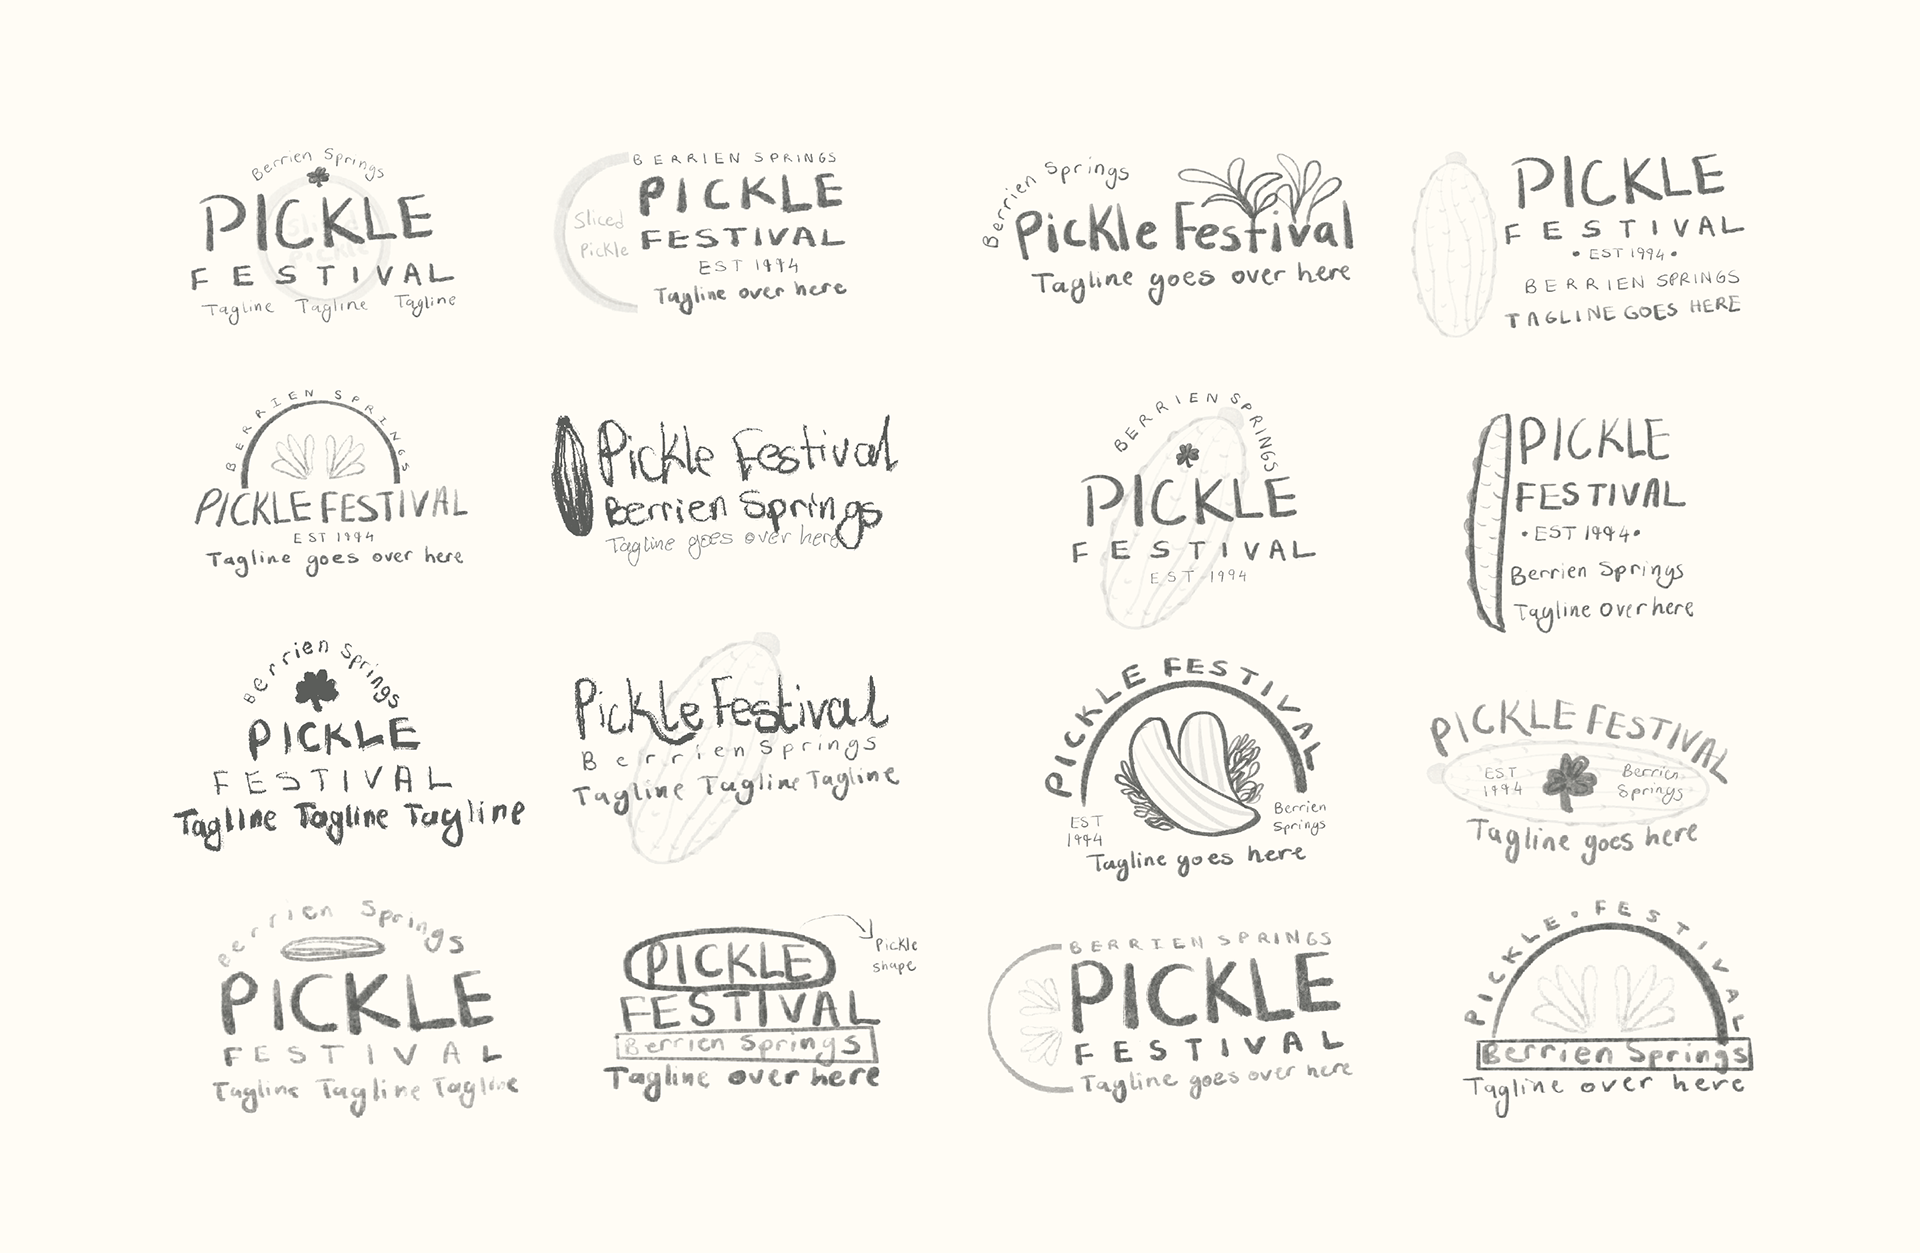 Berrien Springs
PICKLE
Sliced
PICKLE
FESTIVAL
Tagline Tagline Tagline
BERRIEN SPRINGS
PICKLE
Sliced
Pickle
FESTIVAL
EST 1994
Tagline over here
Berrien Springs
Pickle Festival
Tagline goes over here
PICKLE
FESTIVAL
• EST 1994 •
BERRIEN SPRINGS
TAGLINE GOES HERE
BERRIEN SPRINGS
PICKLE FESTIVAL
EST 1994
Tagline goes over here
Pickle Festival
Berrien Springs
Tagline goes over here
BERRIEN SPRINGS
PICKLE
FESTIVAL
EST 1994
PICKLE
FESTIVAL
• EST 1994 •
Berrien Springs
Tagline Over here
Berrien Springs
PICKLE
FESTIVAL
Tagline Tagline Tagline
Pickle Festival
Berrien Springs
Tagline Tagline Tagline
PICKLE FESTIVAL
EST
1994
Berrien
Springs
Tagline goes here
PICKLE FESTIVAL
EST
1994
Berrien
Springs
Tagline goes here
Berrien Springs
PICKLE
FESTIVAL
Tagline Tagline Tagline
PICKLE
Pickle
shape
FESTIVAL
Berrien Springs
Tagline over here
BERRIEN SPRINGS
PICKLE
FESTIVAL
Tagline goes over here
PICKLE • FESTIVAL
Berrien Springs
Tagline over here